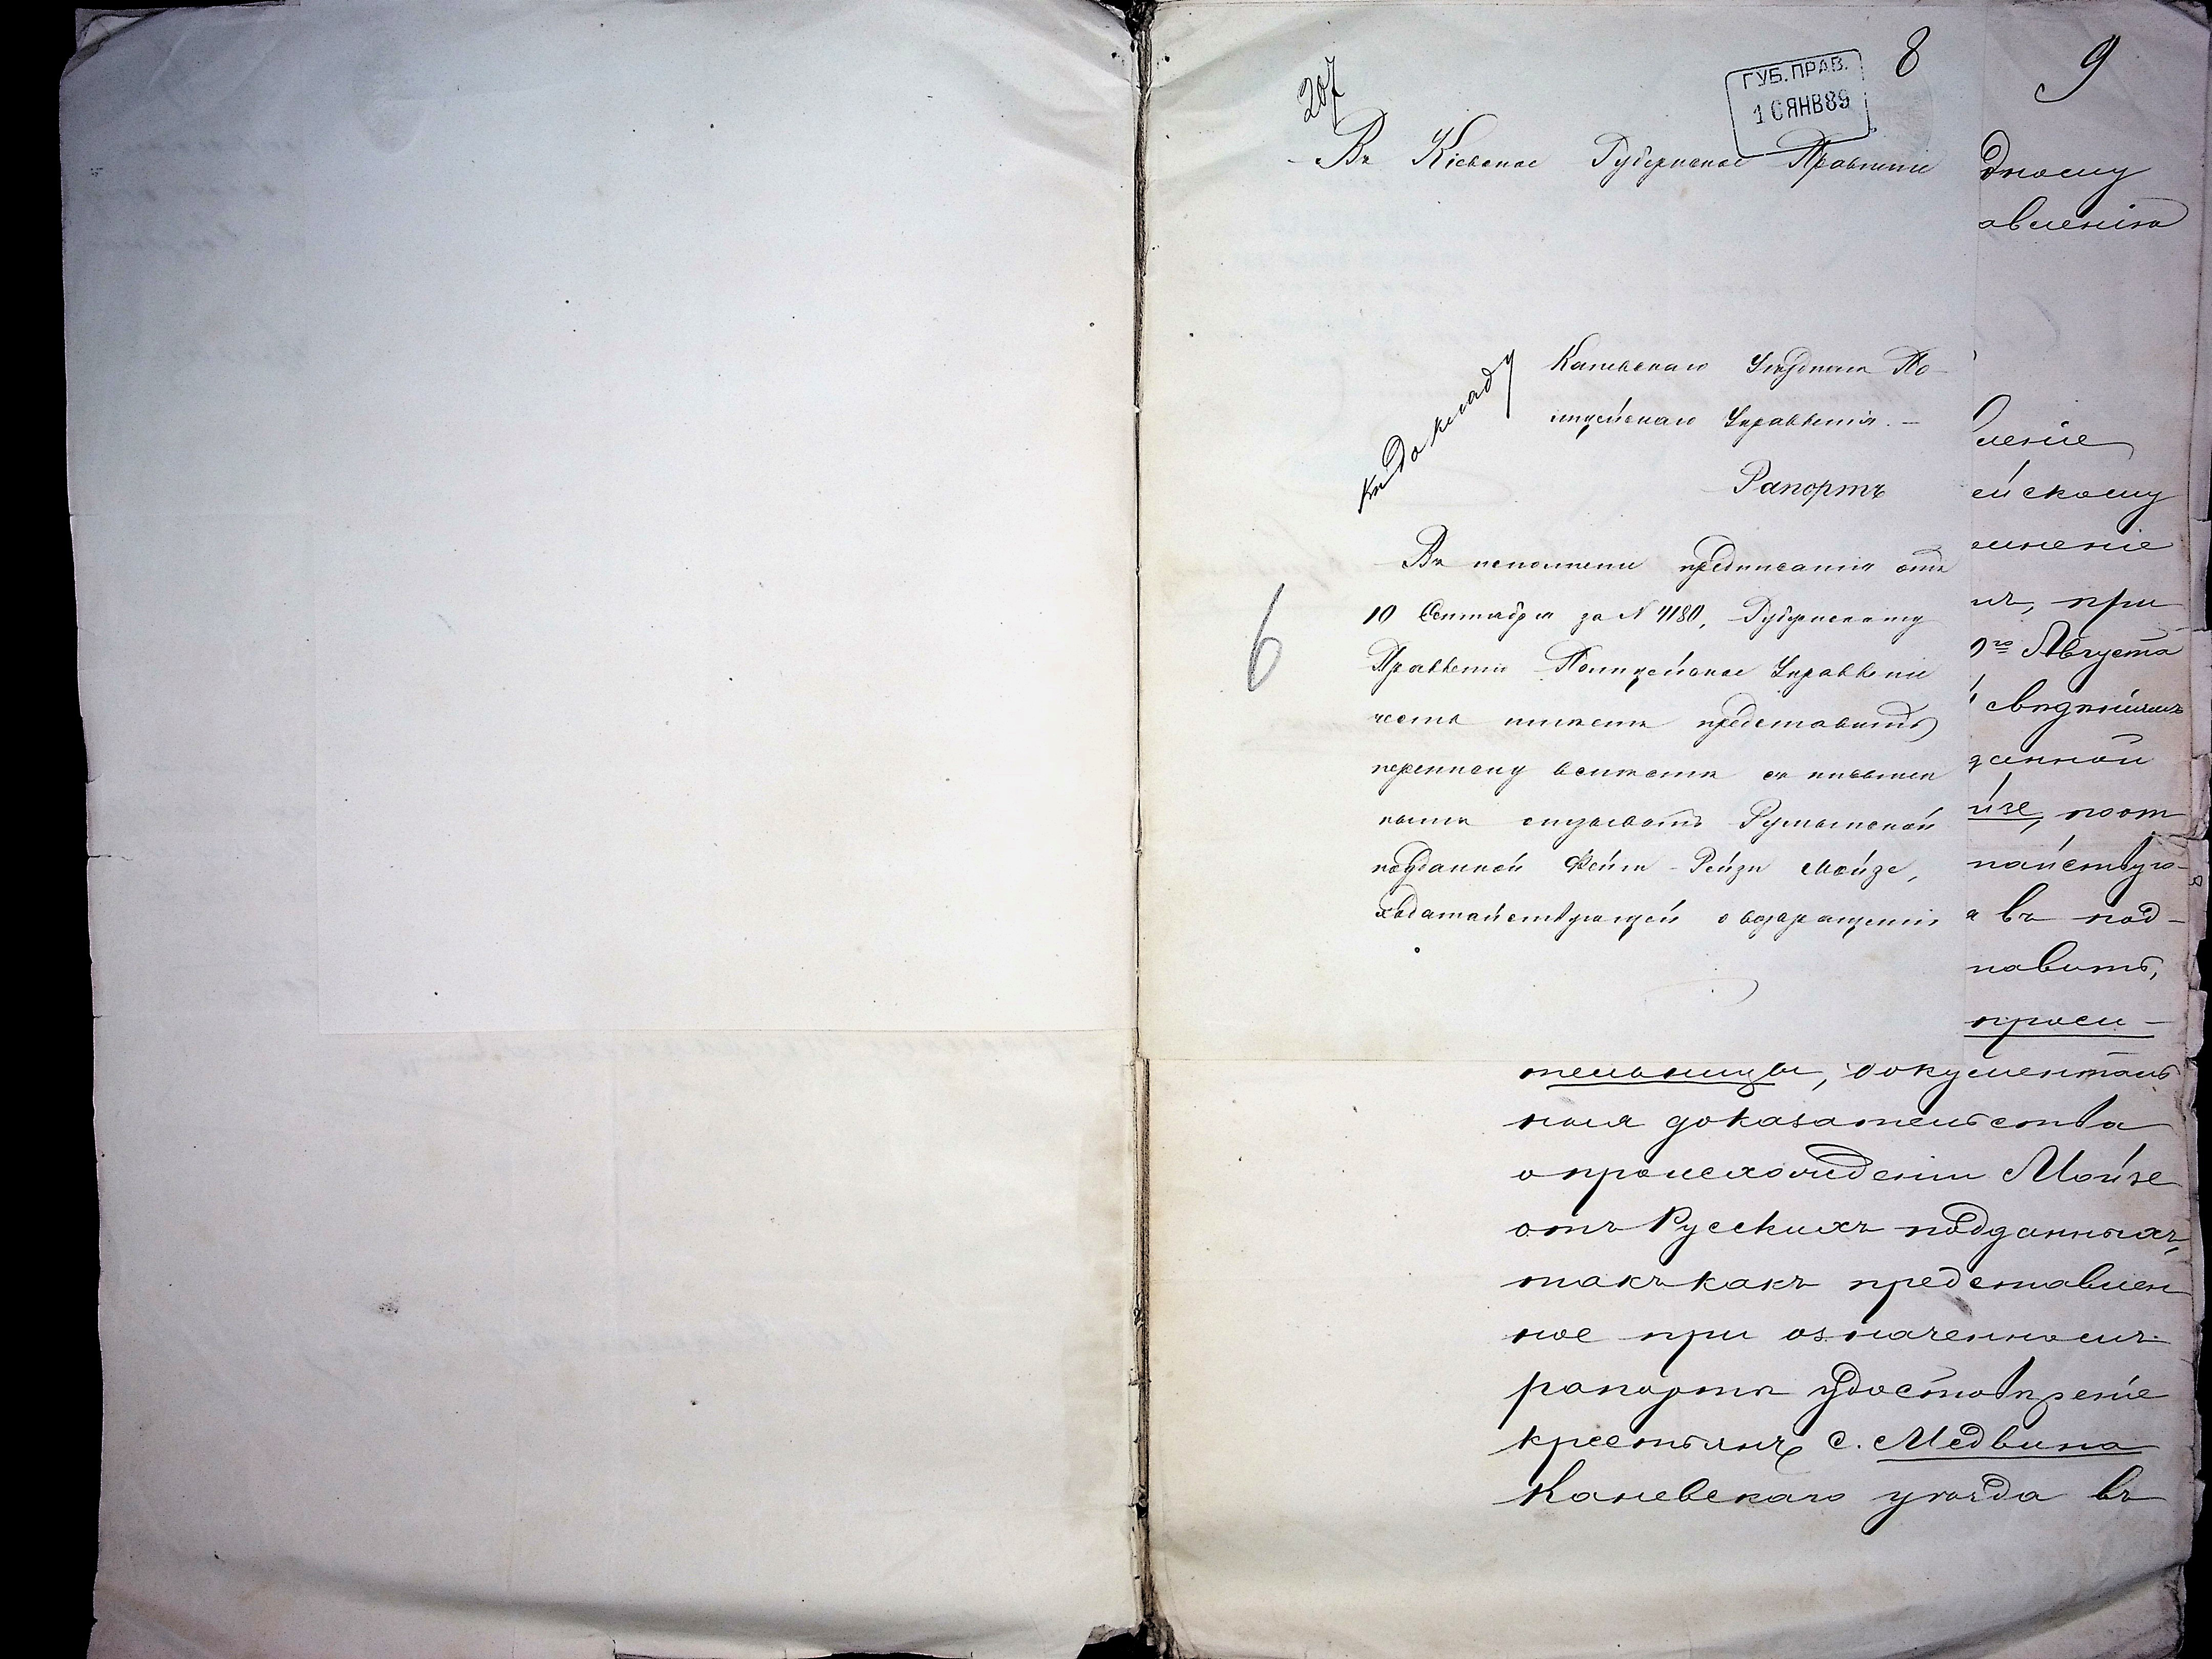 207
ГУБ. ПРАВ.
16 ЯНВ 89
8
Въ Кіевское Губернское Правленіе
къ докладу
Каневскаго Уѣзднаго По-
лицейскаго Управленія. –
Рапортъ
Въ исполненіе предписанія отъ
10 Сентября за N 4180, Губернскому
Правленію Полицейское Управленіе
честь имѣетъ представить
переписку вмѣстѣ съ
отзывомъ Румынской
подданной Фейги-Рейзи Мойзе,
ходатайствующей о возвращеніи
6
9
дному
авленію
леніе
ейскому
лненіе
мъ, при
9го Августа
свѣдѣніямъ
данной
йзе, хот
тайству-
а въ под-
новить,
проси-
тельницы, документаль
ныя доказательства
о происхожденіи Мойзе
отъ Русскихъ подданныхъ,
такъ какъ представлен
ное при означенномъ
рапортѣ удостовѣреніе
крестьянъ с. Медвина
Каневскаго уѣзда въ